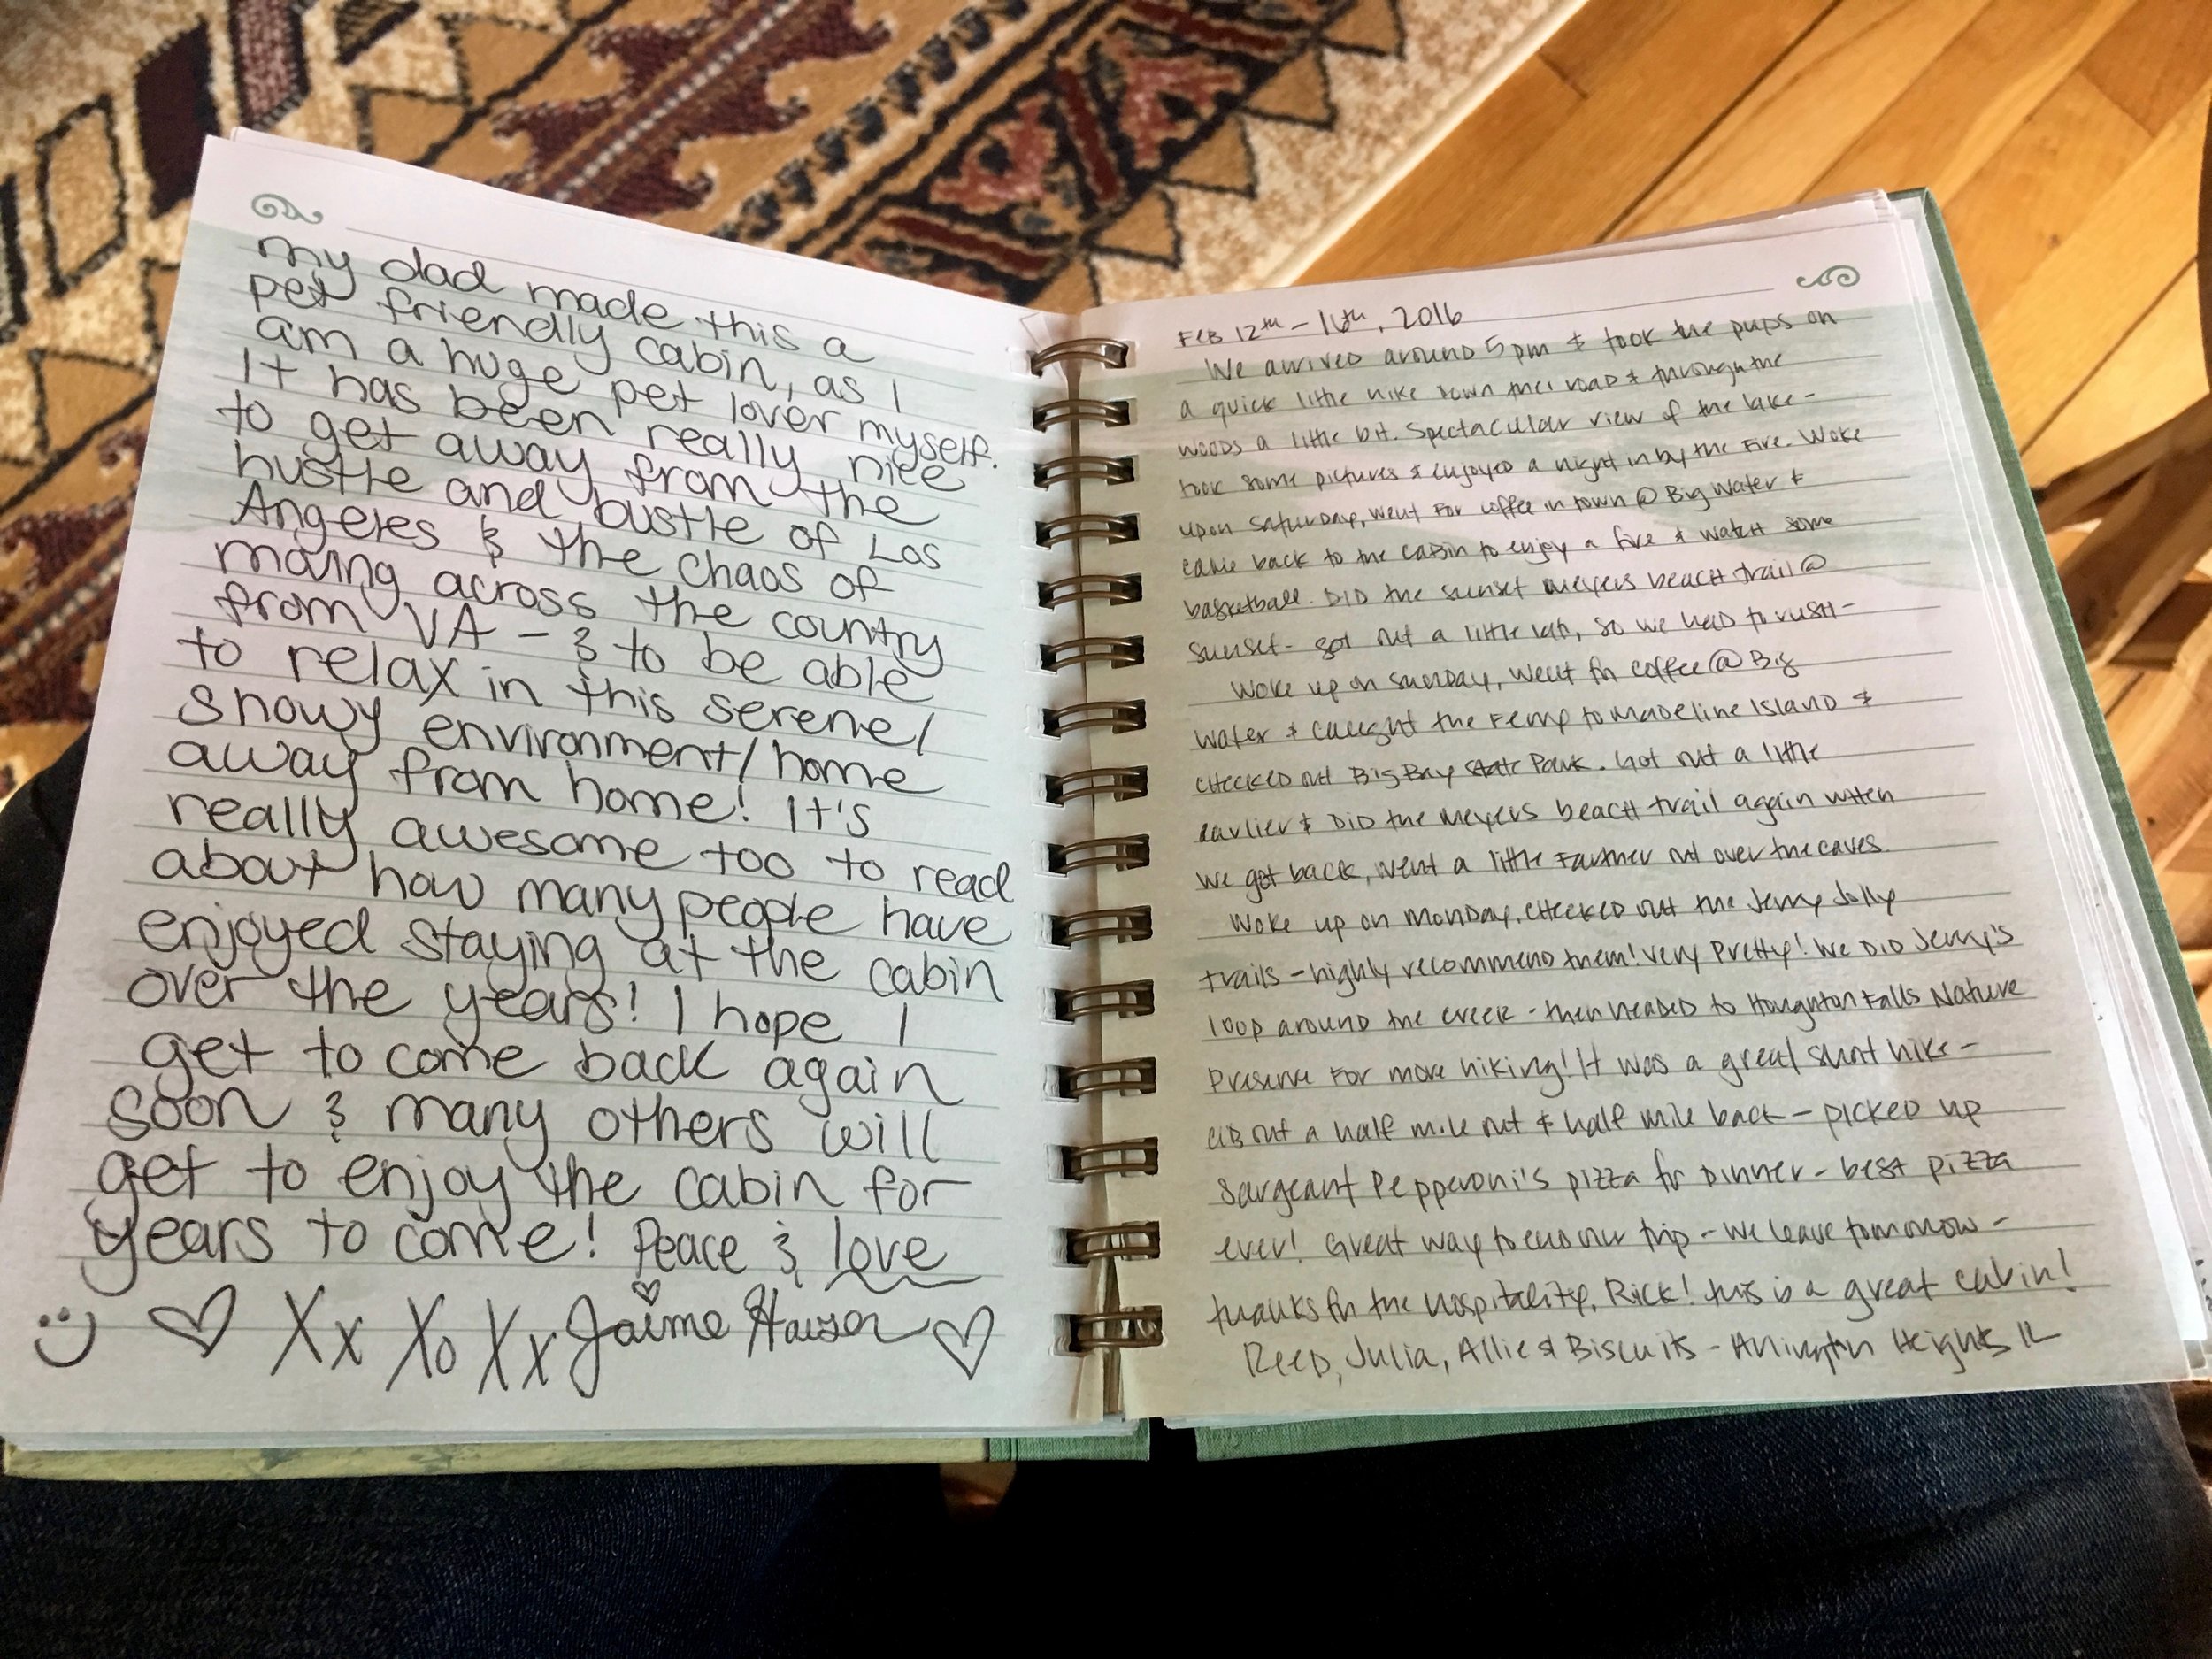 my dad made this a
pet friendly cabin, as I
am a huge pet lover myself.
It has been really nice
to get away from the
hustle and bustle of Los
Angeles & the chaos of
moving across the country
from VA - & to be able
to relax in this serene/
snowy environment/home
away from home! It's
really awesome too to read
about how many people have
enjoyed staying at the cabin
over the years! I hope I
get to come back again
soon & many others will
get to enjoy the cabin for
years to come! Peace & love
Xx Xo Xx Jaime Hauser
FEB 12th - 16th, 2016
We arrived around 5pm & took the pups on
a quick little hike down the road & through the
woods a little bit. Spectacular view of the lake -
took some pictures & enjoyed a night in by the fire. Woke
upon Saturday, went for coffee in town @ Big Water &
came back to the cabin to enjoy a fire & watch some
basketball. Did the sunset Meyers beach trail @
sunset - got out a little late, so we had to rush -
Woke up on Sunday, went for coffee @ Big
Water & caught the Ferry to Madeline Island &
checked out Big Bay State Park. Got out a little
earlier & did the Meyers beach trail again when
we got back, went a little farther out over the caves.
Woke up on Monday, checked out the Jerry Jolly
trails - highly recommend them! Very Pretty! We did Jerry's
loop around the creek - then headed to Houghton Falls Nature
Preserve for more hiking! It was a great short hike -
about a half mile out & half mile back - picked up
Sargeant Pepperoni's pizza for dinner - best pizza
ever! Great way to end our trip - we leave tomorrow -
thanks for the hospitality, Rick! This is a great cabin!
Reed, Julia, Allie & Biscuits - Arlington Heights IL